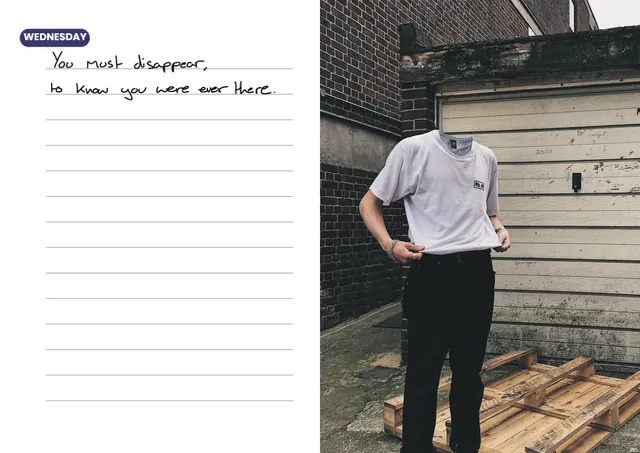 WEDNESDAY
You must disappear,
to know you were ever there.